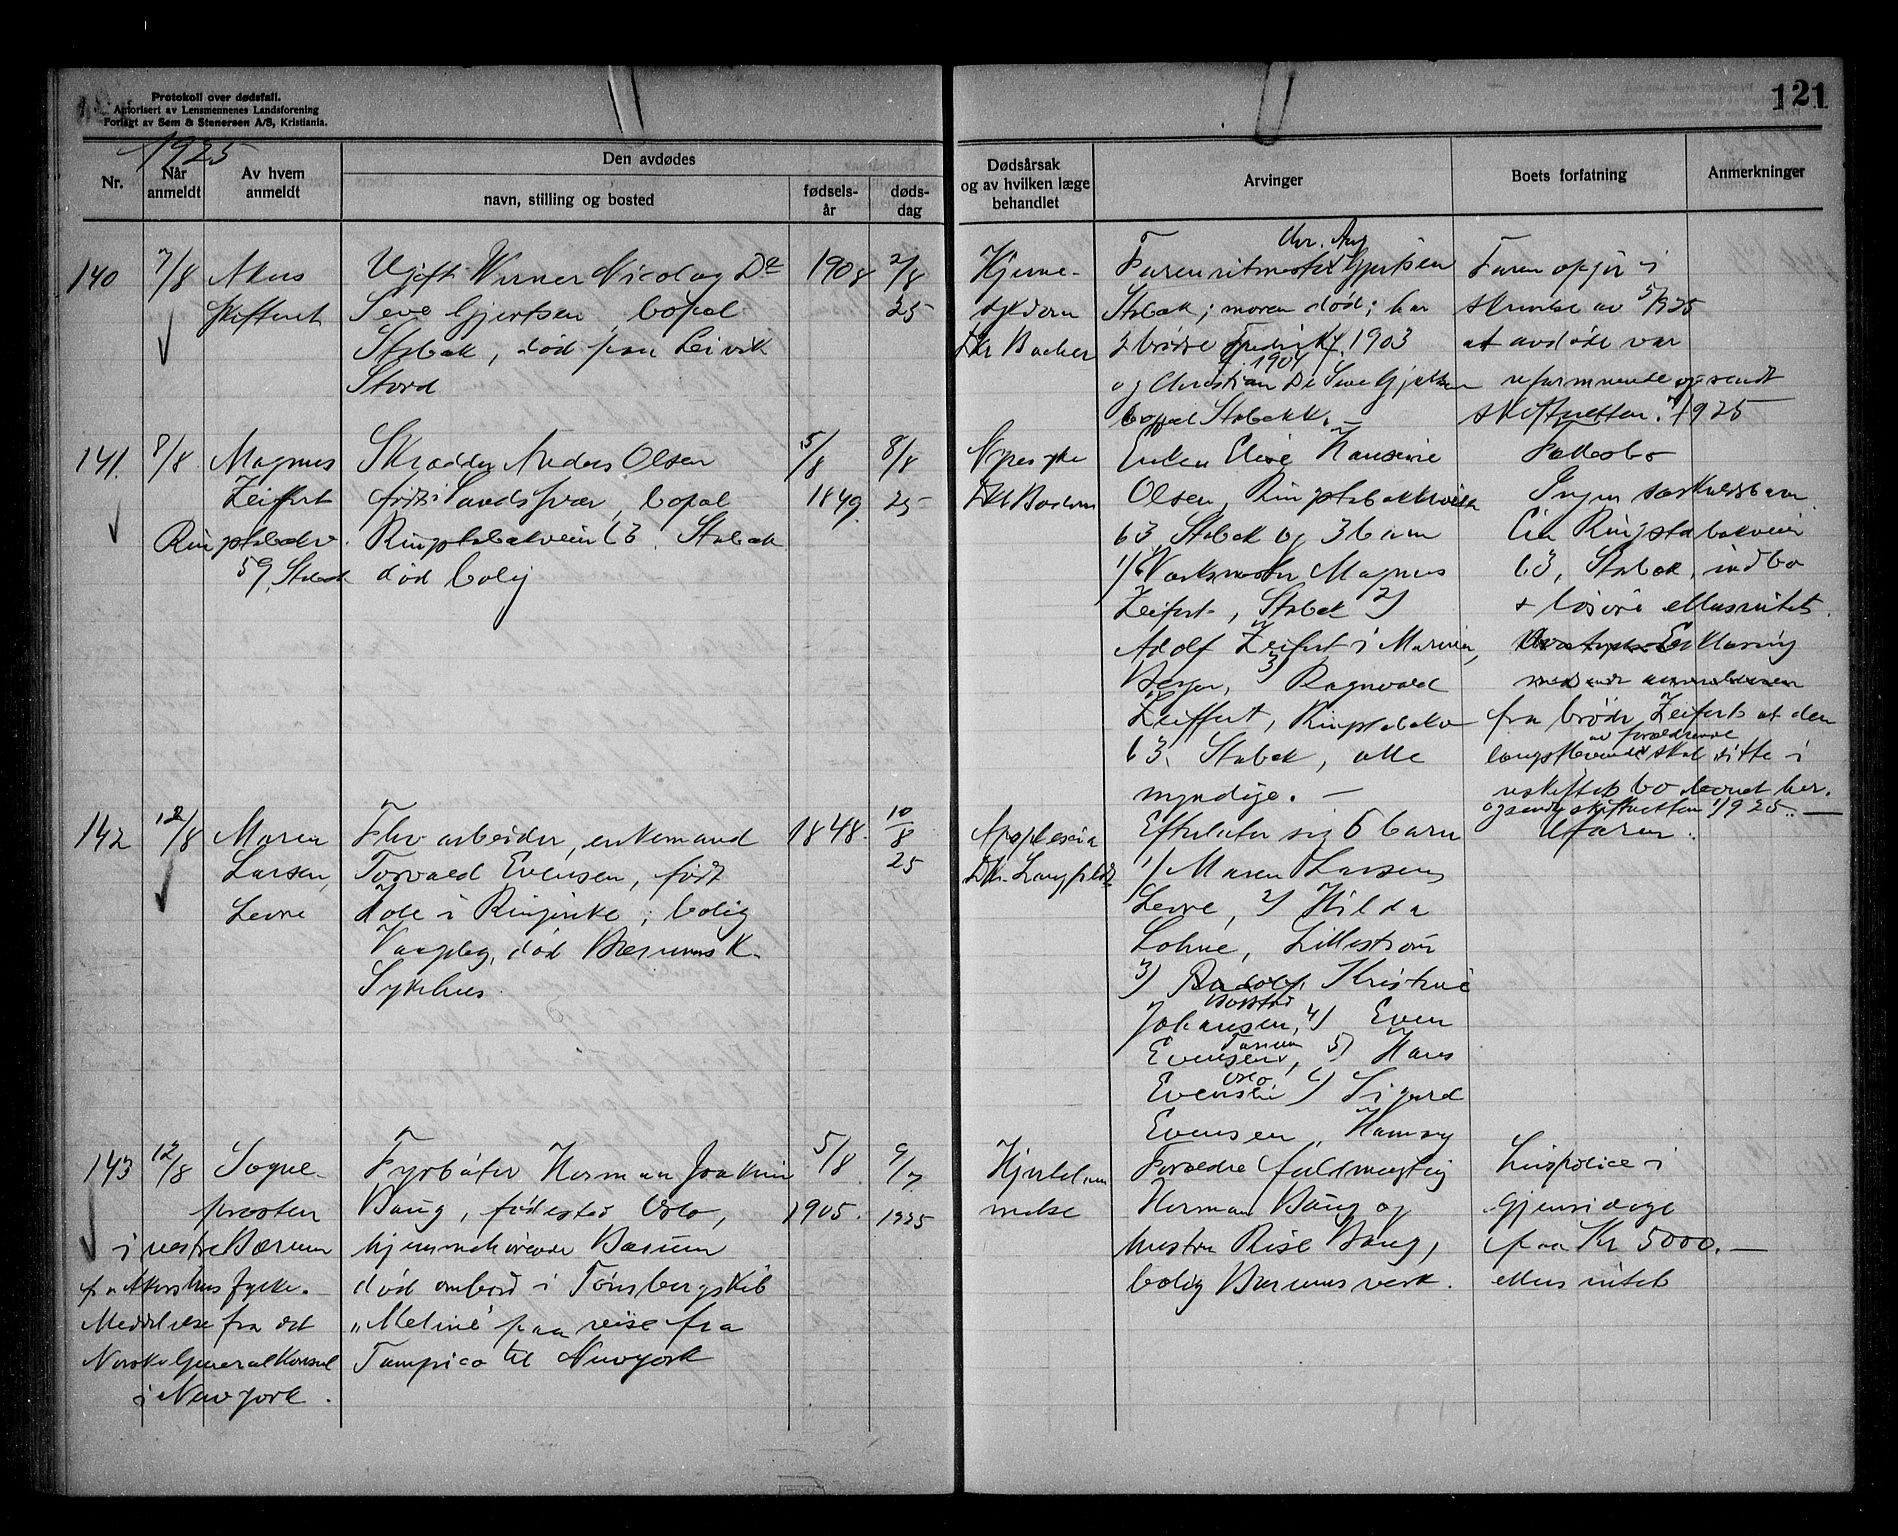 Protokoll over dødsfall.
Autorisert av Lensmennenes Landsforening
Forlagt av Sem & Stenersen A/S, Kristiania.
121
1925
Nr.
Når anmeldt
Av hvem anmeldt
Den avdødes
navn, stilling og bosted
fødsels-
år
døds-
dag
Dødsårsak
og av hvilken læge
behandlet
Arvinger
Boets forfatning
Anmerkninger
140
7/8
Akers
skifteret
Ugift Werner Nicolay De
Seve Gjertsen, bopæl
Stabæk, død paa Leivik
Stord
1908
2/8
25
Hjerne-
sykdom
Dr Backer
Chr. Aug
Faren ritmester Gjertsen
Stabæk; moren død; har
2 brødre Fredrik f. 1903
1904
og Christian De Seve Gjertsen
bopæl Stabækk.
Faren opgir i
skrivelse av 5/8 925
at avdøde var
uformuende og sendt
skifteretten 1925
141.
8/8
Magnus
Zeiffert
Ringstabækv.
59, Stabæk
Skrædder Anders Olsen
født i Sandsvær, bopæl
Ringstabækveien 63. Stabæk
død bolig
5/8
1849
8/8
25
Nyresyke
Enken Elise Hansine
Olsen, Ringstabækveien
63 Stabæk og 3 barn
1) Verksmester Magnus
Zeifert, Stabæk 2)
Adolf Zeifert i Marinen,
3) Ragnvald
Zeiffert, Ringstabækv
63, Stabæk, alle
myndige. —
Fællesbo
Ingen særkuldsbarn
Eier Ringstabækveien
63, Stabæk, indbo
+ løsøre ellers intet.
Erklæring
fra brødr. Zeiferts at den
av forældrene
længstlevende skal sitte i
uskiftet bo levert her.
og sendt skifteretten 1925. —
142
12/8
Maren
Larsen,
Levre
Fhv arbeider, enkemand
Torvald Evensen, født
Hole i Ringerike; bolig
død Bærums K.
Sykehus.
1848.
10/8
25
Apoplexia
Dr. Langfeldt
Efterlater sig 6 barn
1) Maren Larsen,
Levre, 2) Hilda
Lohne, Lillestrøm
3) Kristine
Johansen, 4) Even
Tanum
Evensen, 5) Hans
Oslo
Evensen 6) Sigurd
Evensen, Hamang
Uformu.
143
12/8
Sogne-
presten
i vestre Bærum
fra Akershus fylke.
Meddelelse fra det
Norske Generalkonsul
i New york.
Fyrbøter Herman Joakim
Baug, fødested Oslo,
hjemmehørende Bærum
død ombord i Tønsbergskib
„Meline" paa reise fra
Tampico til Newyork
5/8
1905.
9/7
1925
Hjertelam
melse
Forældre fuldmægtig
Herman Baug og
hustru Rise Baug,
bolig Bærums verk.
Livspolice i
Gjensidige
paa Kr 5000. —
ellers intet